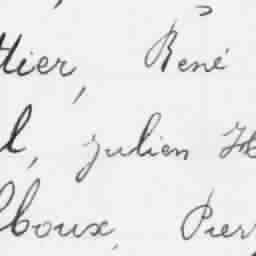 ttier, René
l, Julien H
lboux, Pierr